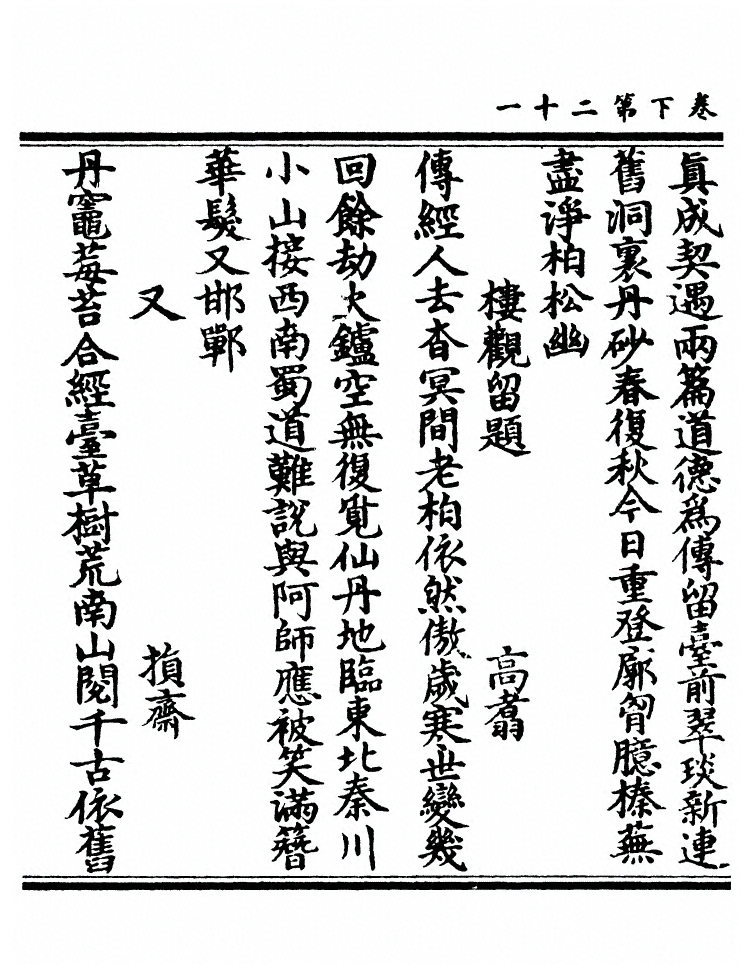 卷下第二十一
真成契遇兩篇道德爲傳留臺前翠琰新連
舊洞裏丹砂春復秋今日重登廓胷臆榛蕪
盡淨柏松幽
樓觀留題 高翿
傳經人去杳冥間老柏依然傲歲寒世變幾
回餘劫火鑪空無復覓仙丹地臨東北秦川
小山接西南蜀道難說與阿師應被笑滿簪
華髮又邯鄲
又 損齋
丹竈莓苔合經臺草樹荒南山閱千古依舊